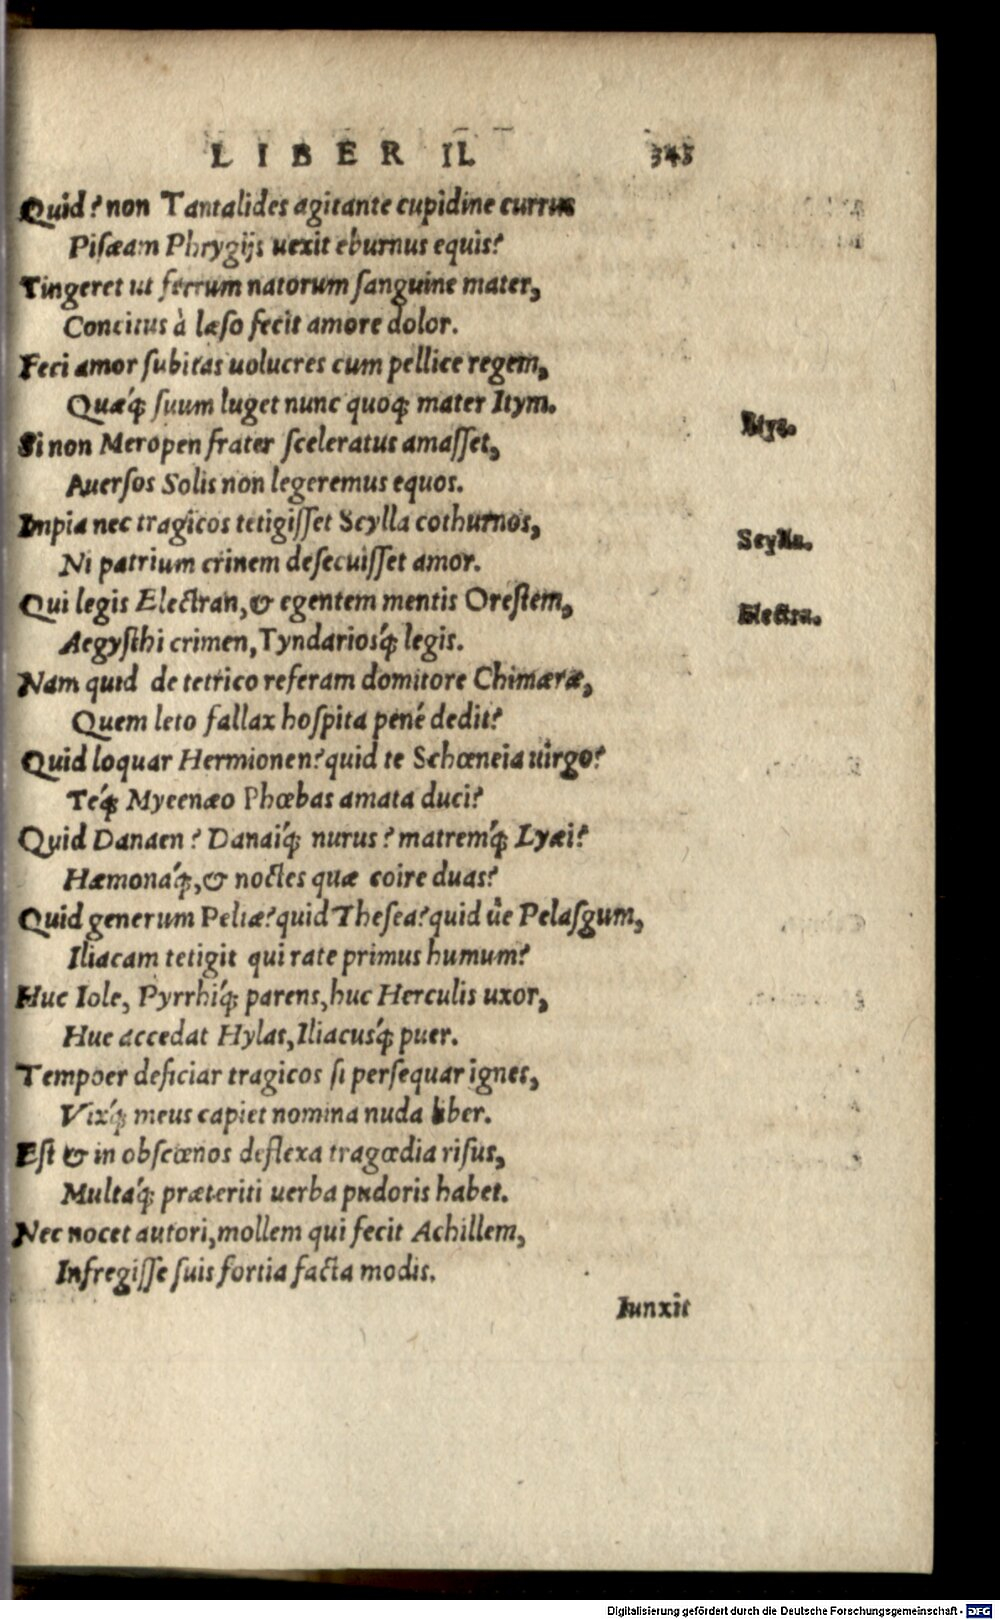 LIBER II. 343
Quid? non Tantalides agitante cupidine currus
Pisæam Phrygijs uexit eburnus equis?
Tingeret ut ferrum natorum sanguine mater,
Concitus à læso fecit amore dolor.
Feci amor subitas uolucres cum pellice regem,
Quæq́; suum luget nunc quoq; mater Itym.
Itys.
Si non Meropen frater sceleratus amasset,
Auersos Solis non legeremus equos.
Impia nec tragicos tetigisset Scylla cothurnos,
Scylla.
Ni patrium crinem desecuisset amor.
Qui legis Electran, & egentem mentis Orestem,
Electra.
Aegysthi crimen, Tyndariosq́; legis.
Nam quid de tetrico referam domitore Chimæræ,
Quem leto fallax hospita penè dedit?
Quid loquar Hermionen? quid te Schœneia uirgo?
Teq́; Mycenæo Phœbas amata duci?
Quid Danaen? Danaiq́; nurus? matremq́; Lyæi?
Hæmonaq́;, & noctes quæ coire duas?
Quid generum Peliæ? quid Thesea? quid ùe Pelasgum,
Iliacam tetigit qui rate primus humum?
Huc Iole, Pyrrhiq́; parens, huc Herculis uxor,
Huc accedat Hylas, Iliacusq́; puer.
Tempoer deficiar tragicos si persequar ignes,
Vixq́; meus capiet nomina nuda liber.
Est & in obscœnos deflexa tragœdia risus,
Multaq́; præteriti uerba pudoris habet.
Nec nocet autori, mollem qui fecit Achillem,
Infregisse suis fortia facta modis.
Iunxit
Digitalisierung gefördert durch die Deutsche Forschungsgemeinschaft - DFG